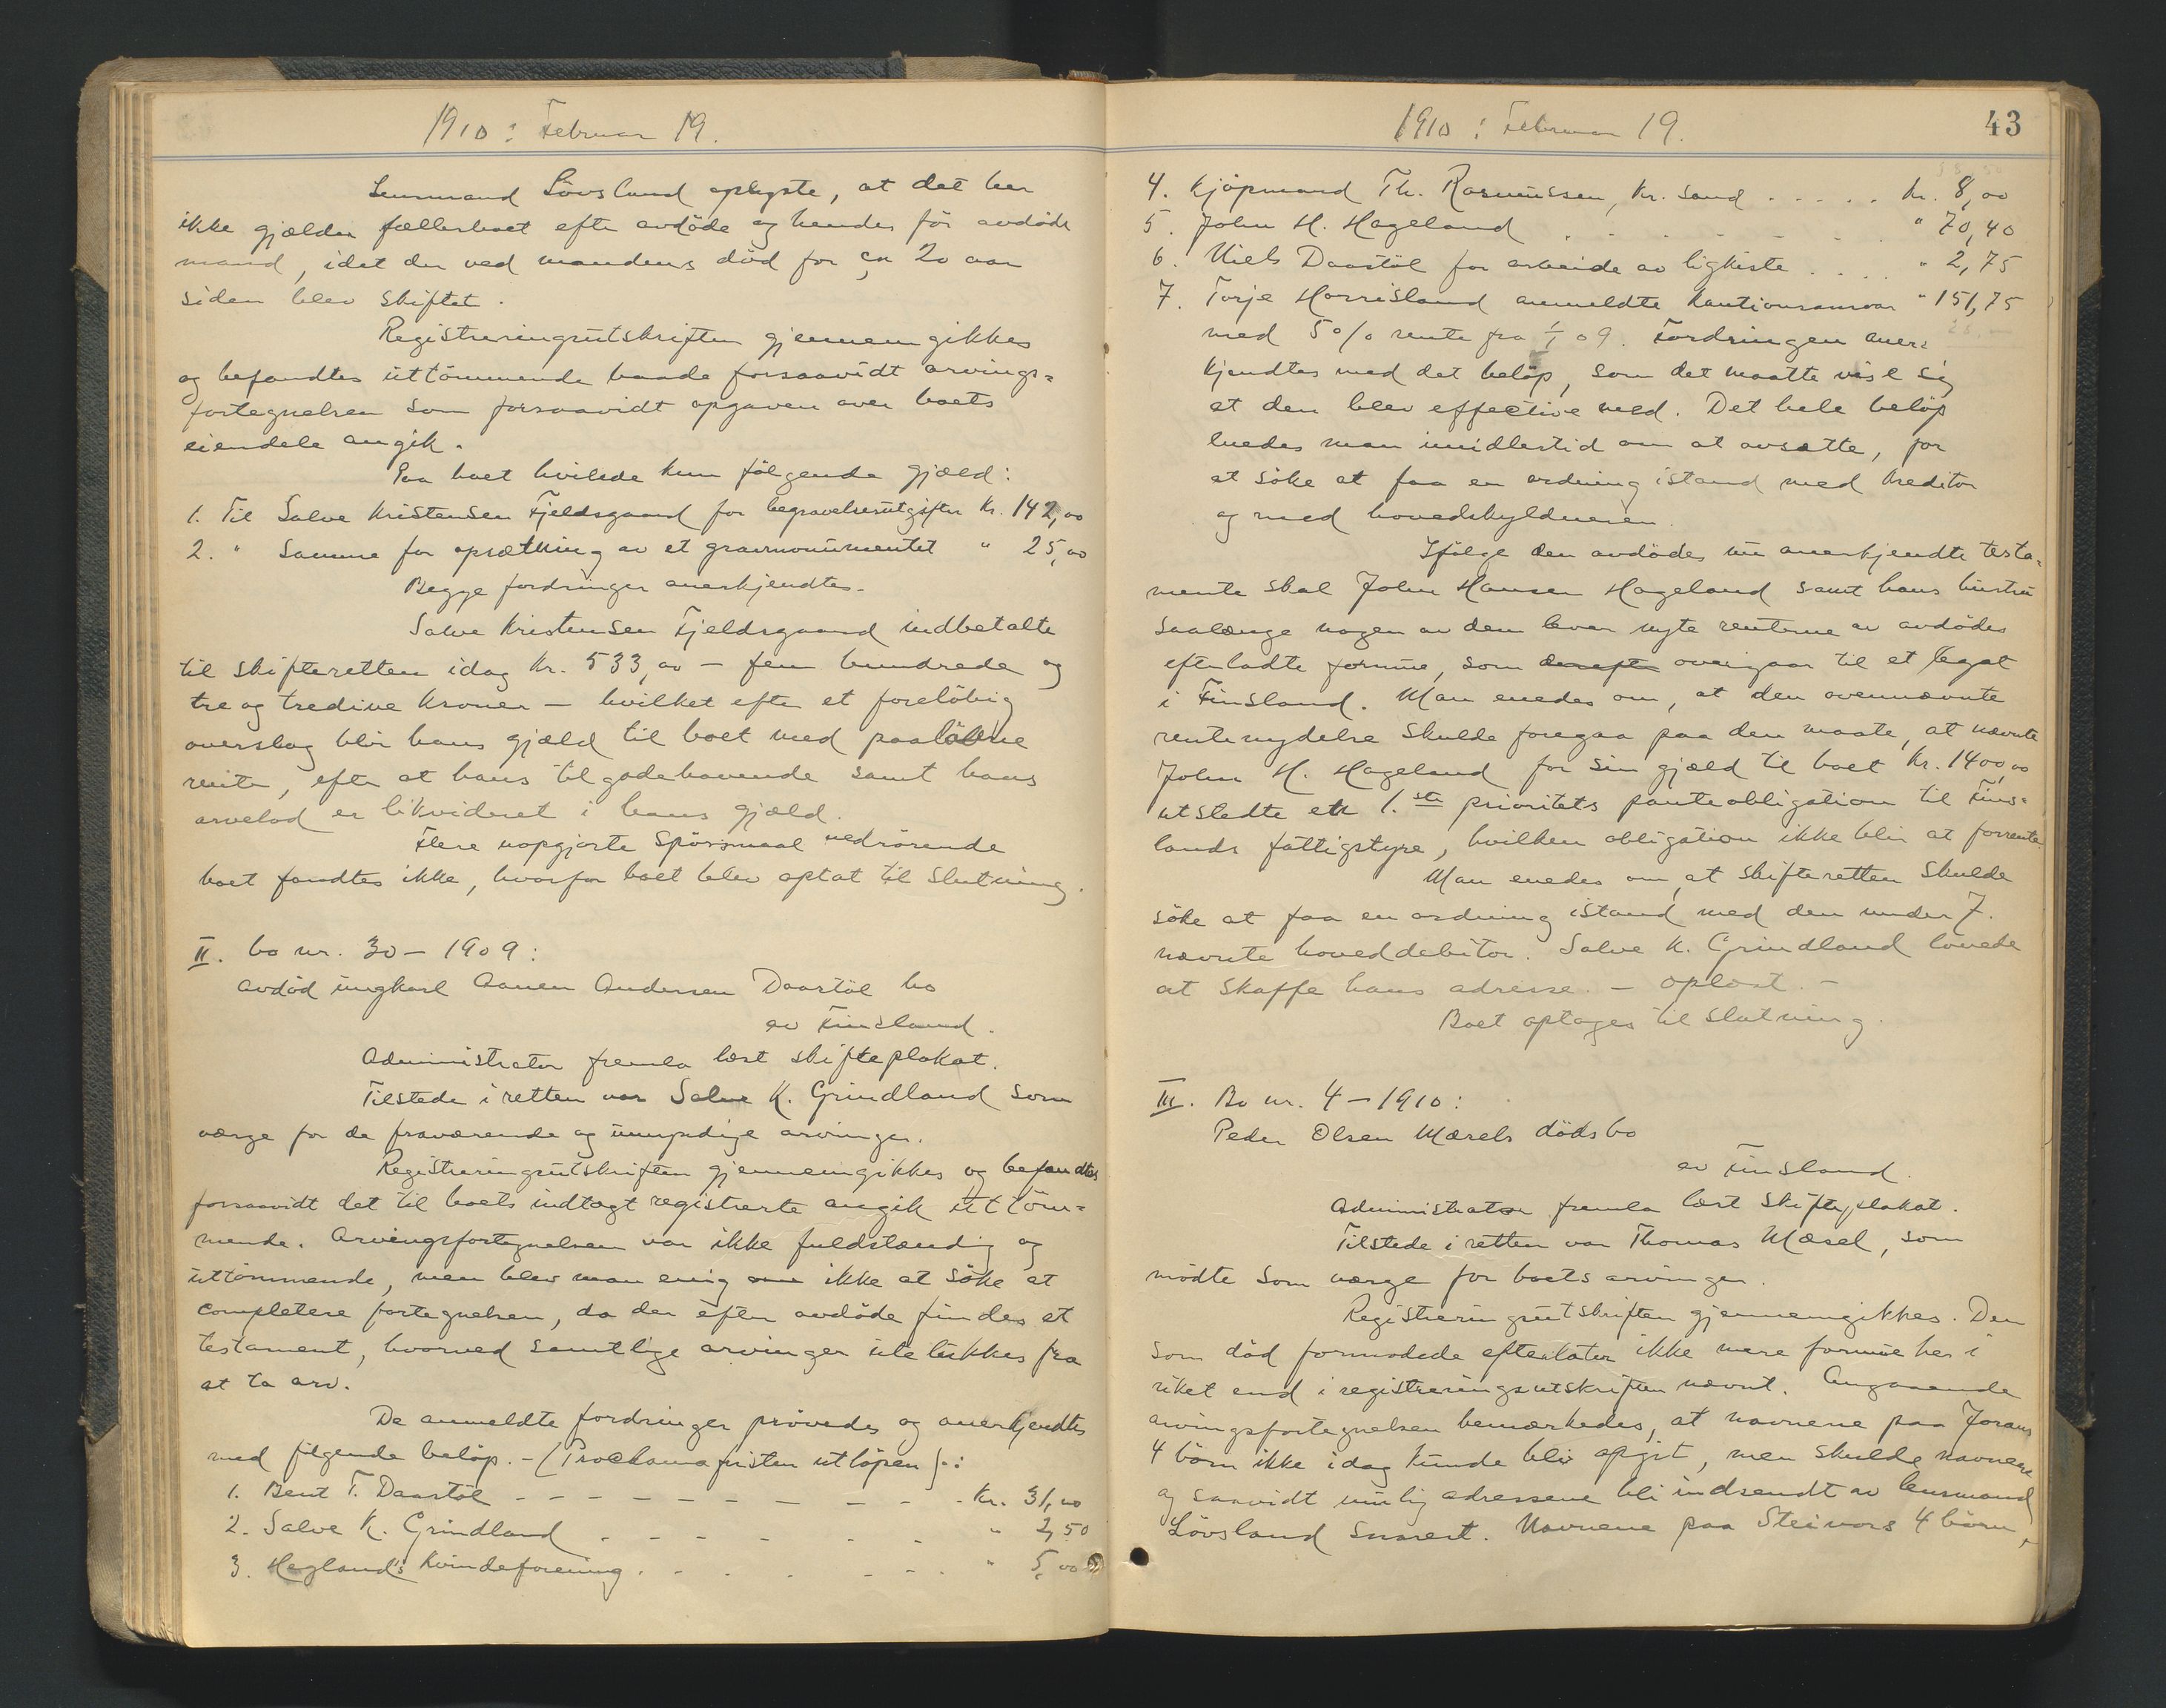 1910 : Februar 19.
Lensmand Lövsland oplyste, at det her
ikke gjælder fællesboet efter avdöde og hendes för avdöde
mand, idet der ved mandens död for ca 20 aar
siden blev skiftet.
Registreringsutskriften gjennemgikkes
og befandtes uttömmende baade forsaavidt arvings=
fortegnelsen som forsaavidt opgaven over boets
eiendele angik.
Paa boet hvilede kun fölgende gjæld:
1. Til Salve Kristensen Fjeldsgaard for begravelsesutgifter Kr. 142,00
2. " Samme for opsætning av et gravmonumentet " 25,00
Begge fordringer anerkjendtes.
Salve Kristensen Fjeldsgaard indbetalte
til skifteretten idag Kr. 533,00 — fem hundrede og
tre og tredive Kroner — hvilket efter et forelöbig
overslag blir hans gjæld til boet med paalöbne
renter, efter at hans tilgodehavende samt hans
arvelod er likvideret i hans gjæld.
Flere uopgjorte Spörsmaal vedrörende
boet fandtes ikke, hvorfor boet blev optat til Slutning.
II. bo nr. 30 — 1909:
avdöd ungkarl Aanen Andersen Daastöl bo
av Finsland.
Administrator fremla læst skifteplakat.
Tilstede i retten var Salve K. Grindland som
værge for de fraværende og umyndige arvinger.
Registreringsutskriften gjennemgikkes og befandtes
forsaavidt det til boets indtægt registrerte angik uttöm=
mende. Arvingsfortegnelsen var ikke fuldstændig og
uttömmende, men blev man enig om ikke at söke at
completere fortegnelsen, da der efter avdöde findes et
testament, hvorved samtlige arvinger utelukkes fra
at ta arv.
De anmeldte fordringer prövedes og anerkjendtes
med fölgende belöp. — (Proclamafristen utlöpen):
1. Bent T. Daastöl - - - - - - - - - Kr. 31,00
2. Salve K. Grindland - - - - - - - " 2,50
3. Hegland's Kvindeforening . - - - - - " 5,00
1910 : Februar 19.
43
4. Kjöpmand Th. Rasmussen, Kr. Sand . . . . . Kr. 8,00
5. John H. Hageland . . . . . . . " 70,40
6. Niels Daastöl for arbeide av ligkiste . . . . " 2,75
7. Torje Horrisland anmeldte Kautionsansvar " 151,75
med 5 % rente fra 1/1 09. Fordringen aner=
kjendtes med det belöp, som det maatte vise sig
at den blev effective med. Det hele belöp
enedes man imidlertid om at avsætte, for
at söke at faa en ordning istand med Kreditor
og med hovedskyldneren.
Ifölge den avdödes nu anerkjendte testa=
mente skal John Hansen Hageland samt hans hustru
saalænge nogen av dem lever nyte renterne av avdödes
efterladte formue, som derefter overgaar til et legat
i Finsland. Man enedes om, at den ovennævnte
rentenydelse skulde foregaa paa den maate, at nævnte
John H. Hageland for sin gjæld til boet Kr. 1400,00
utstedte en 1.ste prioritets panteobligation til Fins=
lands fattigstyre, hvilken obligation ikke blir at forrente
Man enedes om, at skifteretten skulde
söke at faa en ordning istand med den under 7.
nævnte hoveddebitor. Salve K. Grindland lovede
at skaffe hans adresse. — oplæst. —
Boet optages til slutning.
III. Bo nr. 4 — 1910:
Peder Olsen Mæsels dödsbo
av Finsland.
Administrator fremla læst skifteplakat.
Tilstede i retten var Thomas Mæsel, som
mödte som værge for boets arvinger.
Registreringsutskriften gjennemgikkes. Den
som död formodede efterlater ikke mere formue her i
riket end i registreringsutskriften nævnt. Angaaende
arvingsfortegnelsen bemærkedes, at navnene paa Jorans
4 börn ikke idag kunde bli opgit, men skulde navnene
og saavidt mulig adressene bli indsendt av lensmand
Lövsland snarest. Navnene paa Steinors 4 börn,